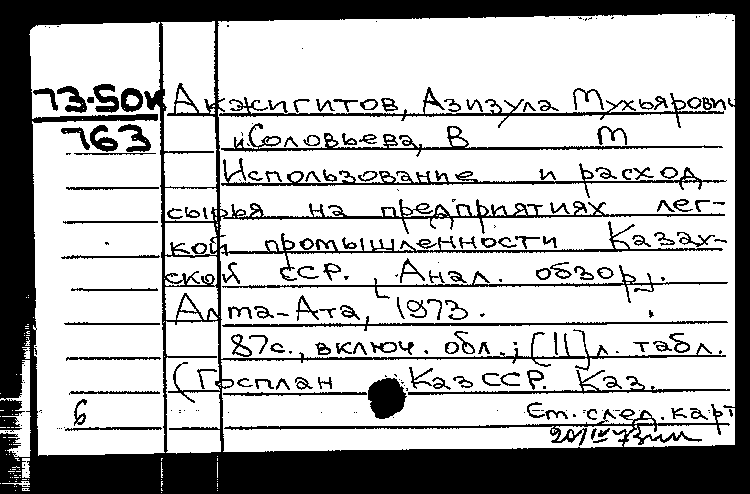 73-50к Акжигитов, Азизула Мухьярович
763 и Соловьева, В М
Использование и расход
сырья на предприятиях лег-
кой промышленности Казах-
ской ССР. [Анал. обзор].
Алма-Ата, 1973.
87с., включ. обл.; [11] л. табл.
(Госплан КазССР. Каз.
б Ст. след. карт